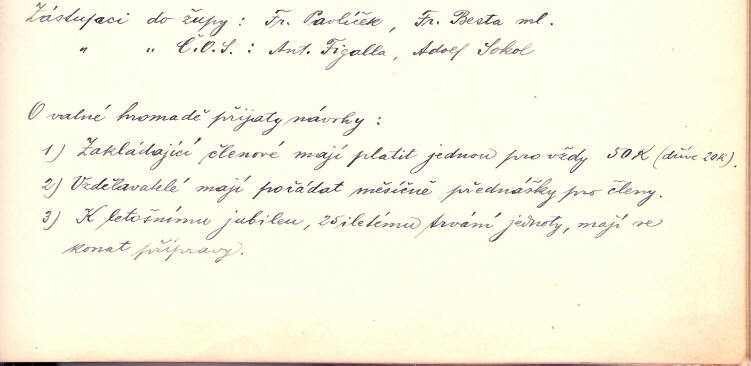 Zástupci do župy : Fr. Pavlíček, Fr. Besta ml.
" " Č.O.S. : Ant. Figalla, Adolf Sokol
O valné hromadě přijaty návrhy :
1) Zakládající členové mají platit jednou pro vždy 50K (dříve 20K).
2) Vzdělavatelé mají pořádat měsíčně přednášky pro členy.
3) K letošnímu jubileu, 25iletému trvání jednoty, mají se
konat přípravy.